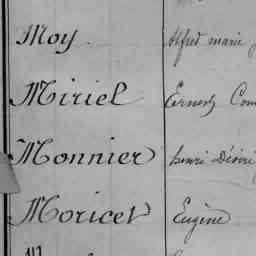 Moy. Alfred marie
Miriel Ernest
Monnier henri Désiré
Moricet Eugène